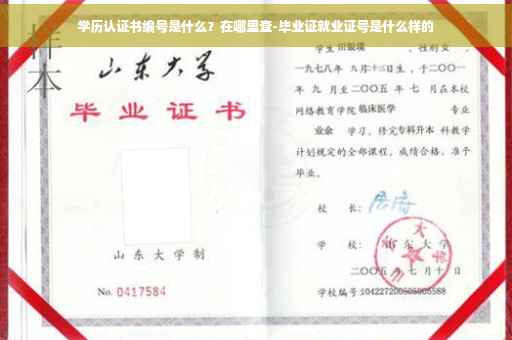 学历认证书编号是什么？在哪里查-毕业证就业证号是什么样的
样本
山东大学
毕业证书
山东大学制
No. 0417584
学生 田银瑞 ，性别女，
一九七八年 九月十三日生，于二〇〇一
年 九 月至二〇〇五 年 七 月在本校
网络教育学院 临床医学 专业
业余 学习，修完专科升本 科教学
计划规定的全部课程，成绩合格，准予
毕业。
校 长：
学 校：山东大学
二〇〇五 年 七 月 十 日
学校编号:104227200505005588